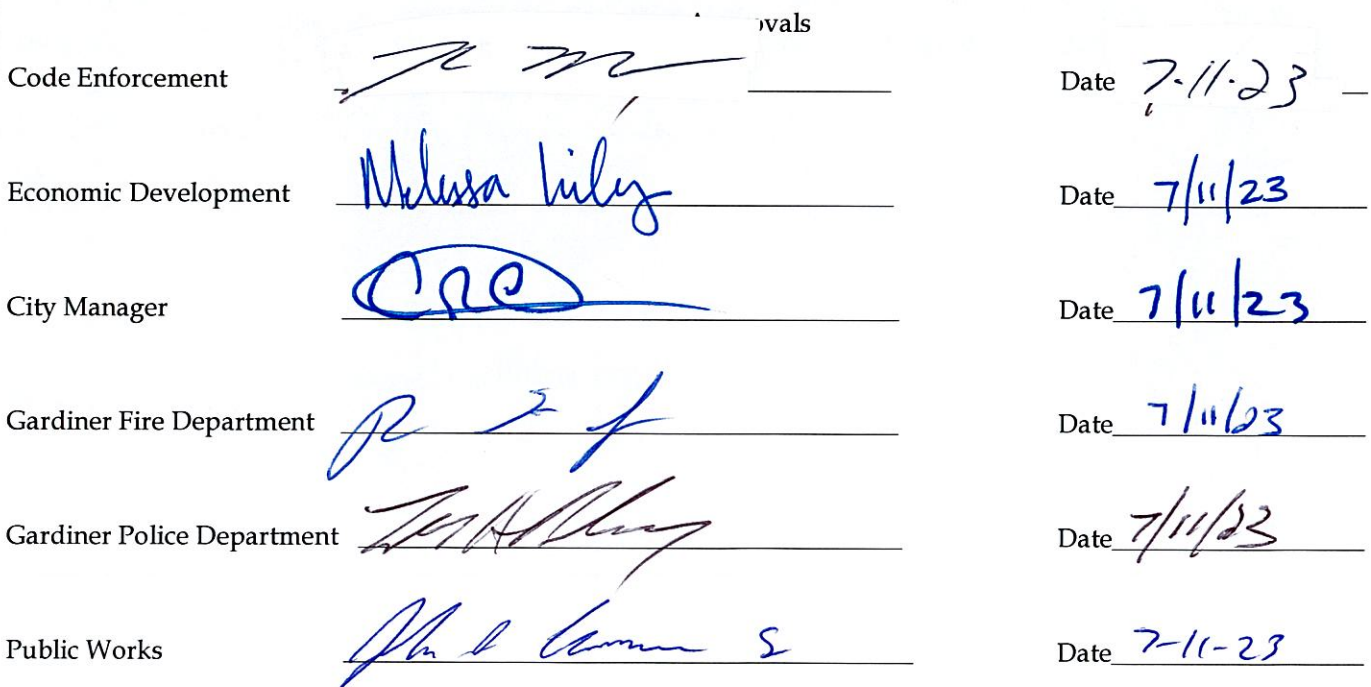 ovals
Code Enforcement Date 7-11-23
Economic Development Melissa Date 7/11/23
City Manager CRC Date 7/11/23
Gardiner Fire Department Date 7/11/23
Gardiner Police Department Date 7/11/23
Public Works Date 7-11-23